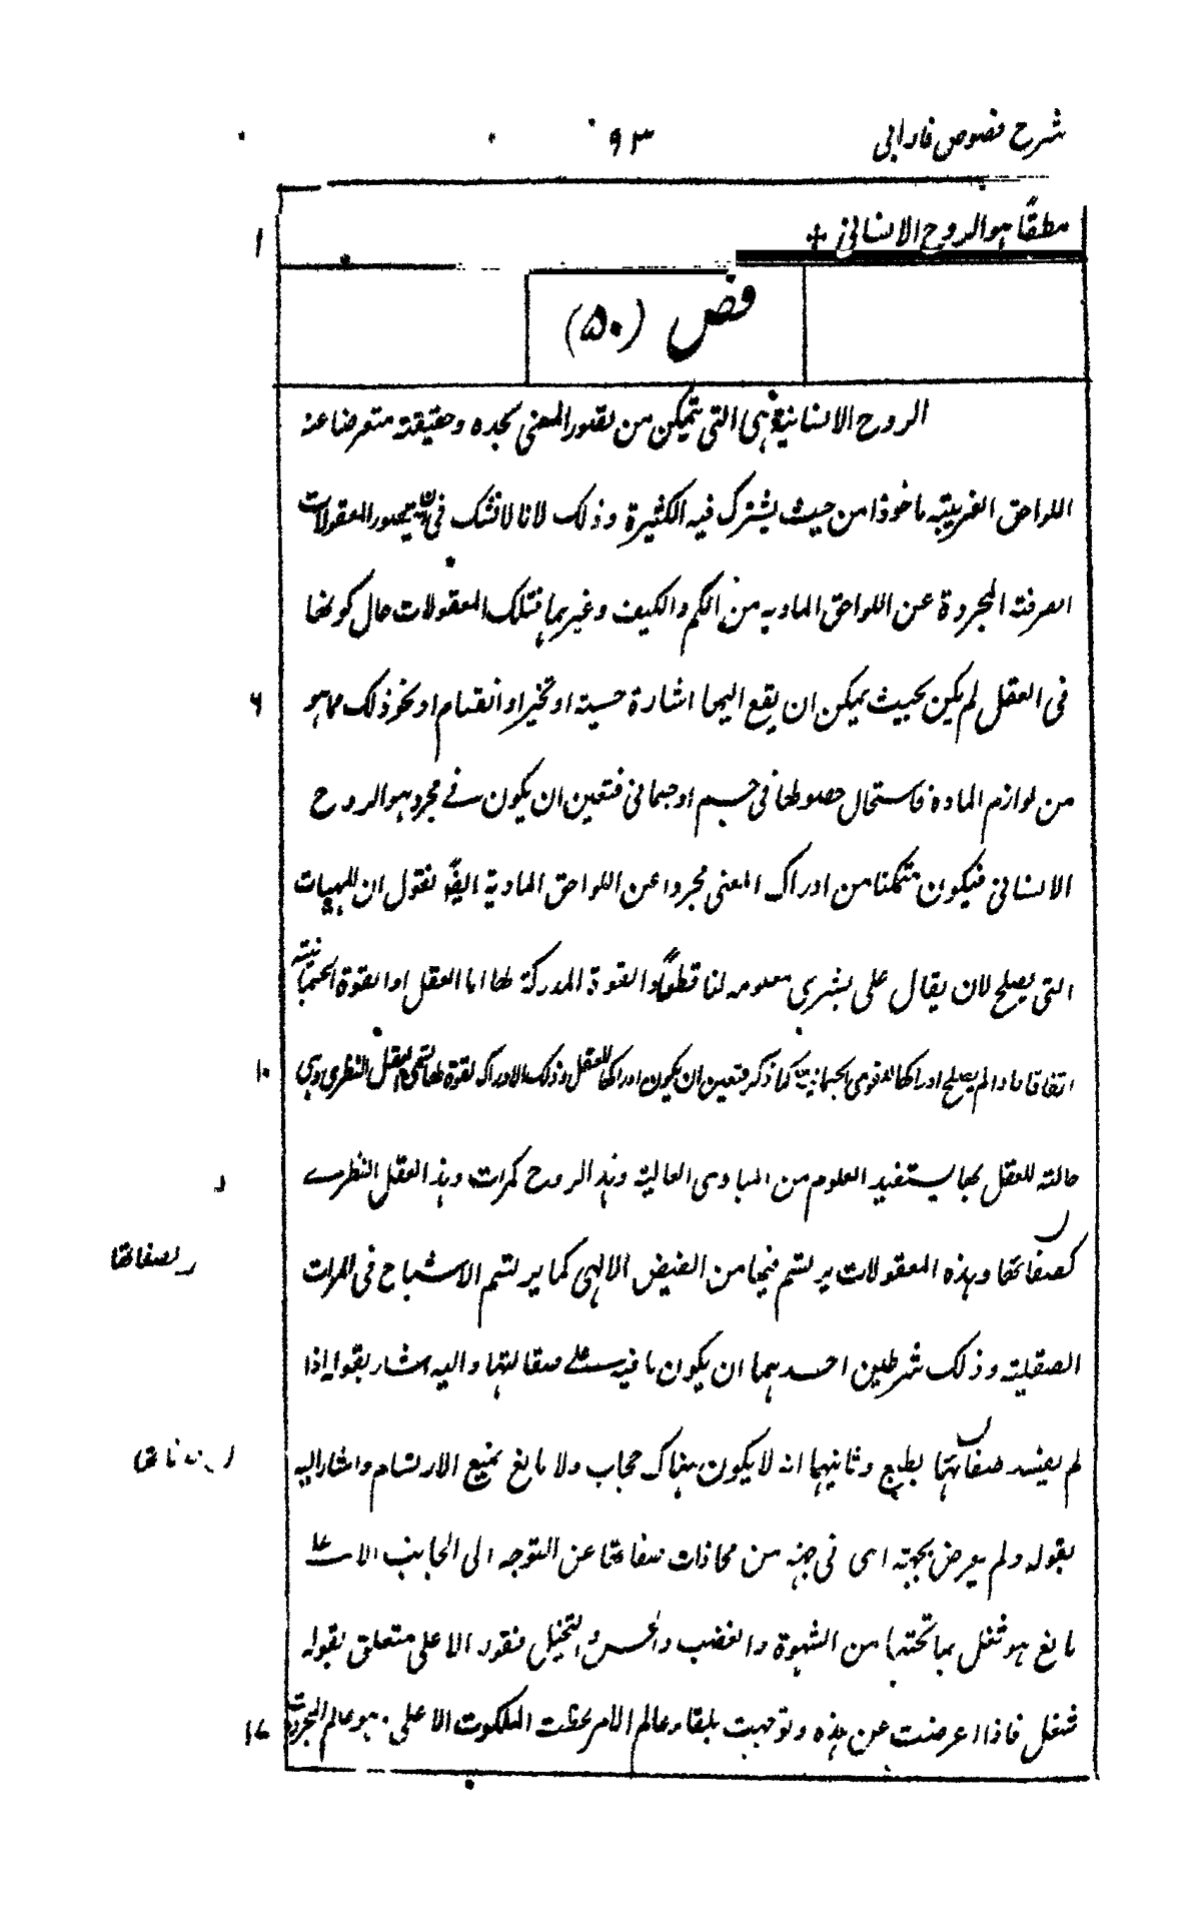 شرح فصوص فارابی
۹۳
مطلقًا ہو الروح الانسانی +
۱
فص (۵۰)
الروح الانسانیۃ ہی التی تتمکن من تصور المعنی بحدہ وحقیقتہ متعرضا عنہ
اللواحق الغریبۃ ماخوذا من حیث یشترک فیہ الکثیرۃ وذلک لانا لانشک فی انہ یتصور المعقولات
الصرفۃ المجردۃ عن اللواحق المادیہ من الکم والکیف وغیرہما فتلک المعقولات حال کونھا
فی العقل لم یکن بحیث یمکن ان یقع الیھا اشارۃ حسیۃ او تحیز او انقسام او نحو ذلک مما ہو
۶
من لوازم المادۃ فاستحال حصولھا فی جسم او جسمانی فتعین ان یکون فے مجرد ہو الروح
الانسانی فیکون متمکنا من ادراک المعنی مجردا عن اللواحق المادیۃ ایضًا نقول ان للمہیات
التی یصلح لان یقال علی بشری معلومہ لنا قطعًا والقوۃ المدرکۃ لھا اما العقل او القوۃ الجسمانیۃ
اتفاقا واذا لم یصلح ادراکھا للقوی الجسمانیۃ کما ذکر فتعین ان یکون ادراکھا للعقل وذلک الادراک لقوۃ لھا تسمی العقل النظری وہی
۱۰
حالۃ للعقل بھا یستفید العلوم من المبادی العالیۃ وہذ الروح کمرات وہذ العقل النظرے
کصفائھا وہذہ المعقولات یرتسم فیھا من الفیض الالہی کما یرتسم الاشباح فی المرات
الصقلیۃ وذلک شرطین احدہما ان یکون ما فیہ علے صقالتہا والیہ اشار بقولہ اذا
لم یفسد صفائہا بطبع وثانیہما انہ لا یکون ہناک حجاب ولا مانع یمنع الارتسام واشار الیہ
بقولہ ولم یعرض بجہتہ ای فی جہۃ من محاذات صفائھا عن التوجہ الی الجانب الاعلے
مانع ہو شغل بما تحتہا من الشہوۃ والغضب والحس والتخیل فقولہ الاعلی متعلق بقولہ
شغل فاذا اعرضت عن ہذہ وتوجہت بلقاء عالم الامر لحظت الملکوت الاعلی ۔ ہو عالم المجردات
۱۷